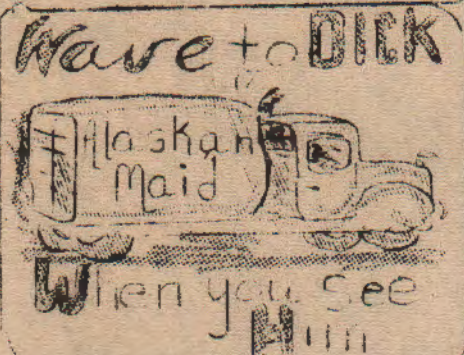 Wave to DICK
Alaskan
Maid
When you see
Him